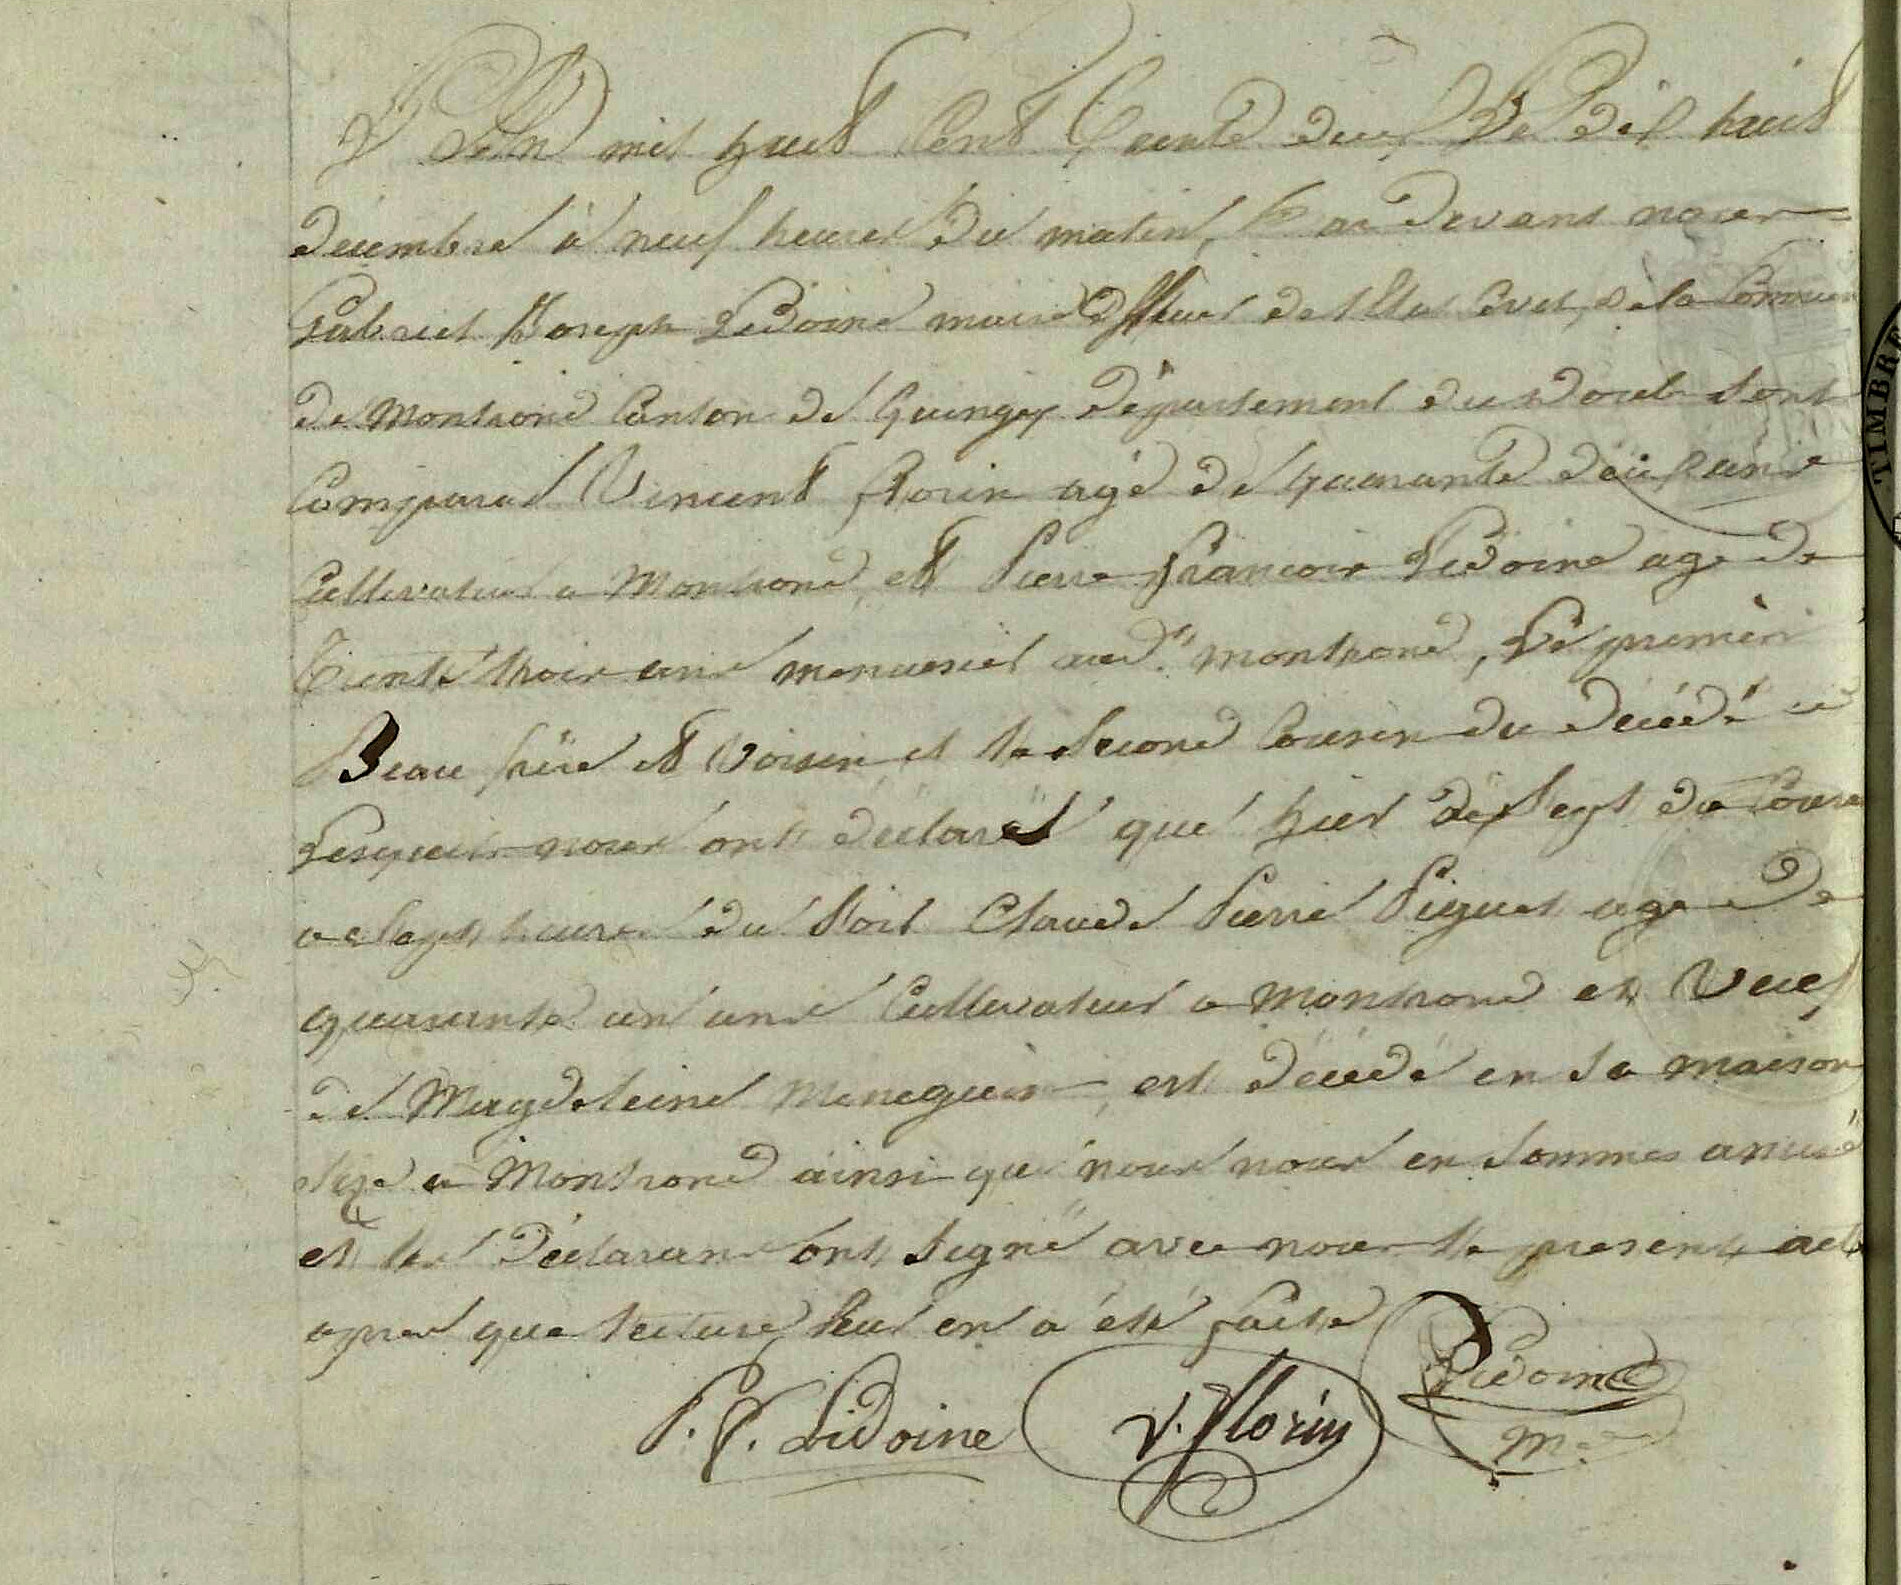 L'an mil huit Cent trente deux Le dix huit
décembre à neuf heures du matin, Par devant nous
Gabriel Joseph Lidoine maire Officier de l'Etat Civil, de la Commune
de Montrond Canton de Quingey Département du Doubs Sont
Comparus Vincent florin agé de quarante deux ans
Cultivateur a Montrond, et Pierre françois Lidoine age de
Trente trois ans menuisier aud.t montrond, Le premier
Beau frère et Voisin et le Second Cousin du décédé
Lesquels nous ont déclaré que hier dix Sept du Courant
a Sept heures du Soir Claude Pierre Piguet age de
quarante un ans Cultivateur a Montrond et Veuf
de Magdeleine Meneguin, est décédé en Sa maison
Size a Montrond ainsi que nous nous en Sommes assuré
et les Déclarans ont Signé avec nous le present acte
apres que lecture leur en a été faite
P. F. Lidoine V. florin Lidoine
TIMBRE